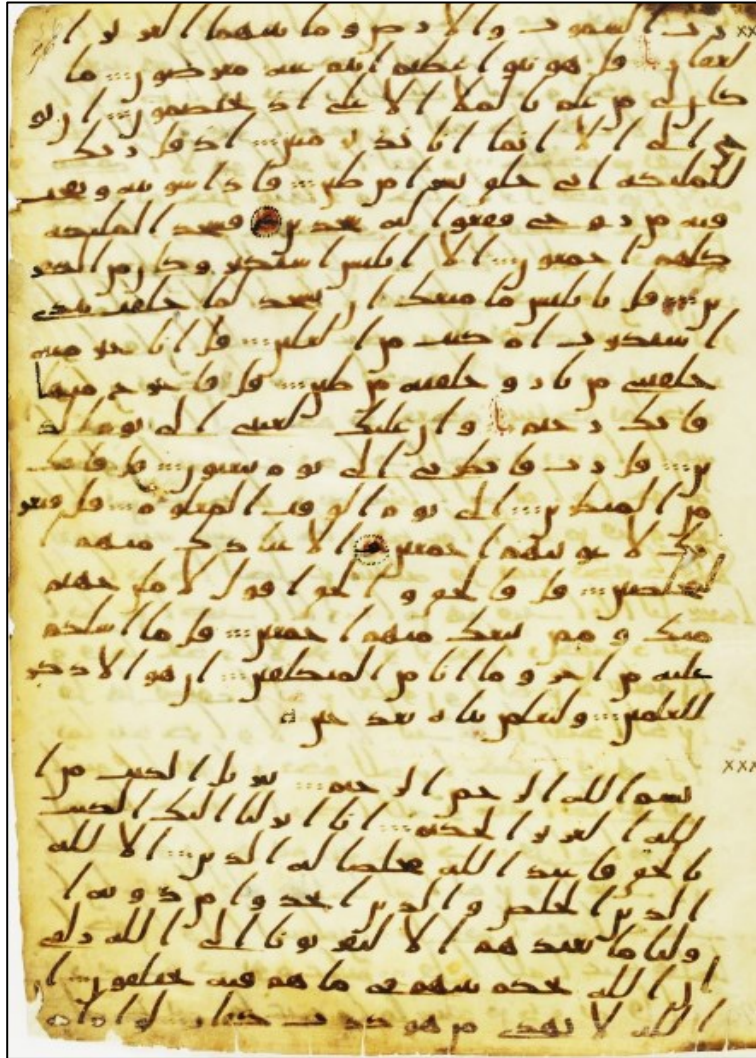 رب السموت والارض وما بينهما العزيز ا
لغفر قل هو نبوا عظيم انتم عنه معرضون ما
كان لي من علم بالملا الاعلى اذ يختصمون ان يو
حى الى الا انما انا نذير مبين اذ قل ربك
للمليكه اني خلق بشرا من طين فاذا سويته ونفخت
فيه من روحي فقعوا له سجدين فسجد المليكه
كلهم اجمعون الا ابليس استكبر وكان من الكفر
ين قل يابليس ما منعك ان تسجد لما خلقت بيدي
استكبرت ام كنت من العلين قل انا خير منه
خلقتني من نار وخلقته من طين قل فاخرج منها
فانك رجيم وان عليك لعنتي الى يوم الد
ين قل رب فانظرني الى يوم يبعثون قل فانك
من المنظرين الى يوم الوقت المعلوم قل فبعز
تك لاغوينهم اجمعين الا عبادك منهم ا
لمخلصين قل فالحق والحق اقول لاملن جهنم
منك وممن تبعك منهم اجمعين قل ما اسلكم
عليه من اجر وما انا من المتكلفين ان هو الا ذكر
للعلمين ولتعلمن نباه بعد حين
بسم الله الرحمن الرحيم تنزيل الكتب من ا
لله العزيز الحكيم انا انزلنا اليك الكتب
بالحق فاعبد الله مخلصا له الدين الا لله
الدين الخلص والذين اتخذوا من دونه ا
وليا ما نعبدهم الا ليقربونا الى الله زلفى
ان الله يحكم بينهم في ما هم فيه يختلفون ا
ن الله لا يهدي من هو كذب كفار لو اراد